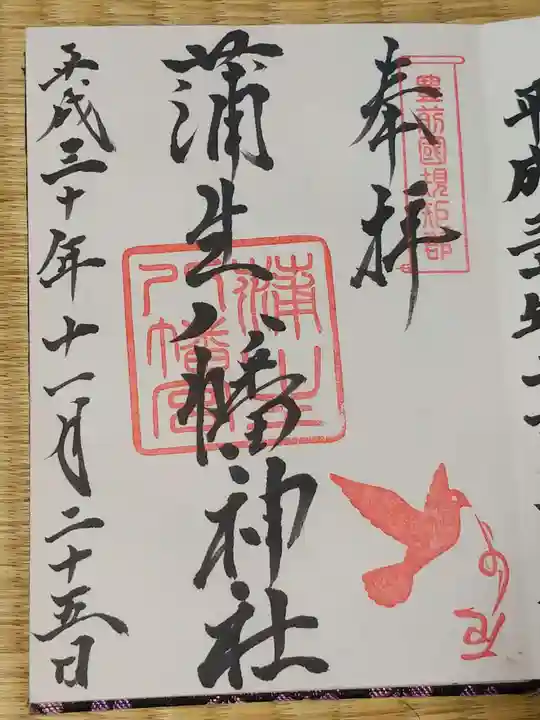 平成三
奉拝
豊前國規矩郡
蒲生八幡神社
蒲生八幡宮
平成三十年十一月二十五日